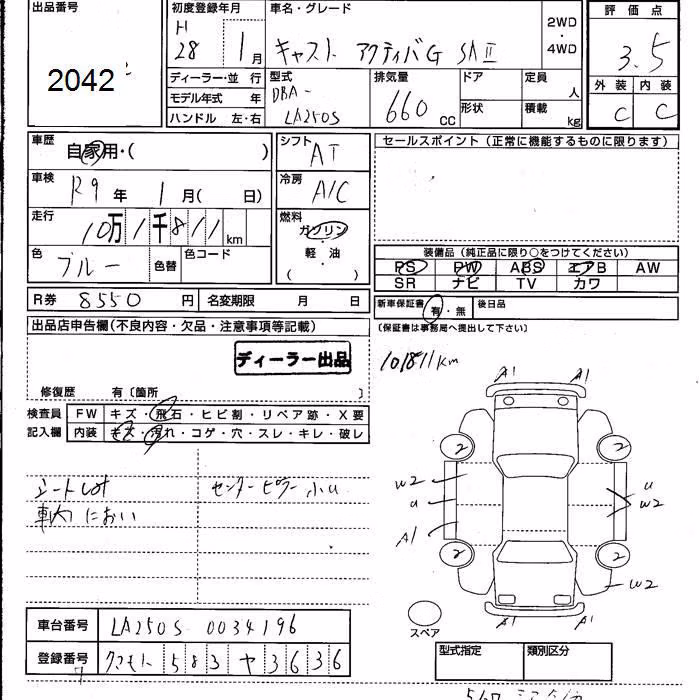 出品番号
2042
初度登録年月
H
28 1月
ディーラー・並 行
モデル年式 年
ハンドル 左・右
車名・グレード
キャスト アクティバG SAⅡ
2WD
・
4WD
型式
DBA-
LA250S
排気量
660 cc
ドア
形状
定員
人
積載
kg
評価点
3.5
外装 内装
C C
車歴
自家用・( )
車検
R9 年 1月( 日)
走行
10万1千811 km
色
ブルー
色替
色コード
シフト
AT
冷房
A/C
燃料
ガソリン
・
軽・油
( )
セールスポイント(正常に機能するものに限ります)
装備品(純正品に限り○をつけてください)
PS PW ABS エアB AW
SR ナビ TV カワ
R券 8550 円 名変期限 月 日
新車保証書 有・無 後日品
(保証書は事務局へ提出して下さい)
出品店申告欄(不良内容・欠品・注意事項等記載)
ディーラー出品
修復歴 有〔箇所 〕
101811km
検査員 FW キズ・飛石・ヒビ割・リペア跡・X要
記入欄 内装 キズ・汚れ・コゲ・穴・スレ・キレ・破レ
シート
センターピラー小U
車内におい
A1 A1
2 2
W2 U
U W2
A1
2 2
W2
A1 A1
スペア
車台番号 LA250S-0034196
登録番号 クマモト 583 ヤ 3636
型式指定 類別区分